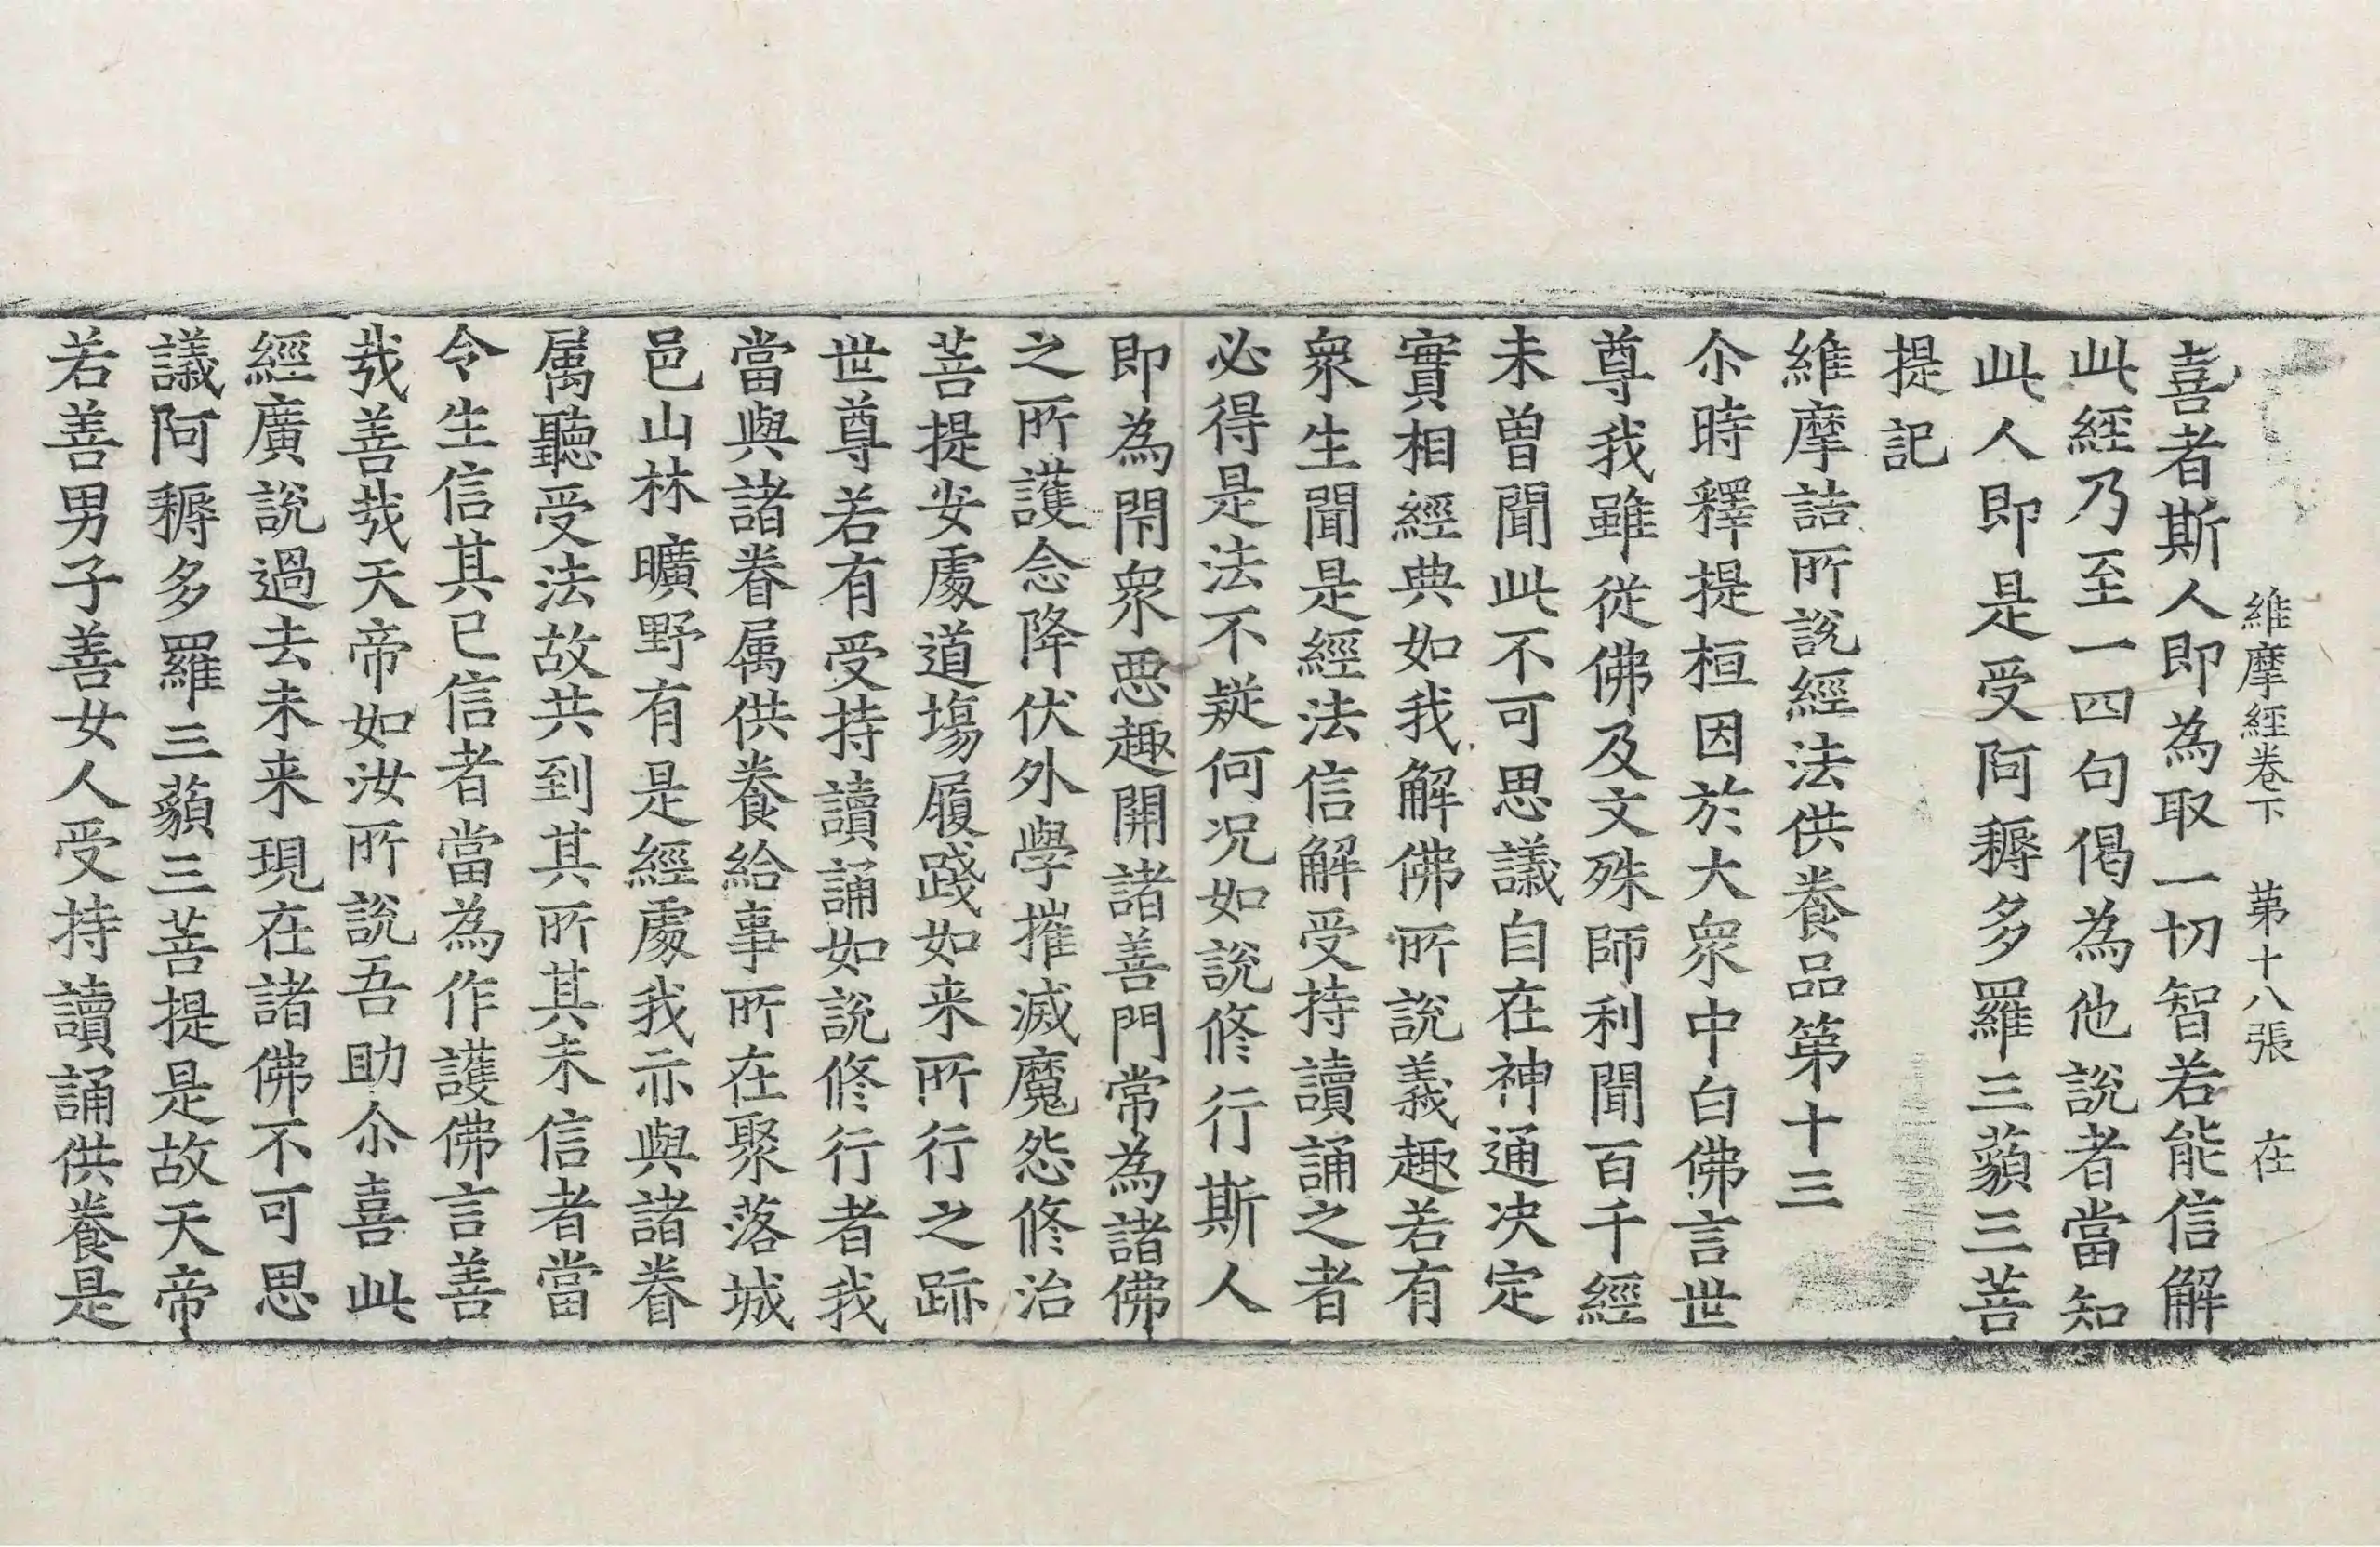 維摩經卷下 苐十八張 在
喜者斯人即為取一切智若能信解
此經乃至一四句偈為他說者當知
此人即是受阿耨多羅三藐三菩
提記
維摩詰所說經法供養品第十三
尒時釋提桓因於大衆中白佛言世
尊我雖從佛及文殊師利聞百千經
未曾聞此不可思議自在神通决定
實相經典如我解佛所說義趣若有
衆生聞是經法信解受持讀誦之者
必得是法不疑何况如說修行斯人
即為閇衆惡趣開諸善門常為諸佛
之所護念降伏外學摧滅魔怨修治
菩提安處道塲履踐如来所行之跡
世尊若有受持讀誦如說修行者我
當與諸眷属供養給事所在聚落城
邑山林曠野有是經處我亦與諸眷
属聽受法故共到其所其未信者當
令生信其已信者當為作護佛言善
㢤善㢤天帝如汝所說吾助尒喜此
經廣說過去未来現在諸佛不可思
議阿耨多羅三藐三菩提是故天帝
若善男子善女人受持讀誦供養是